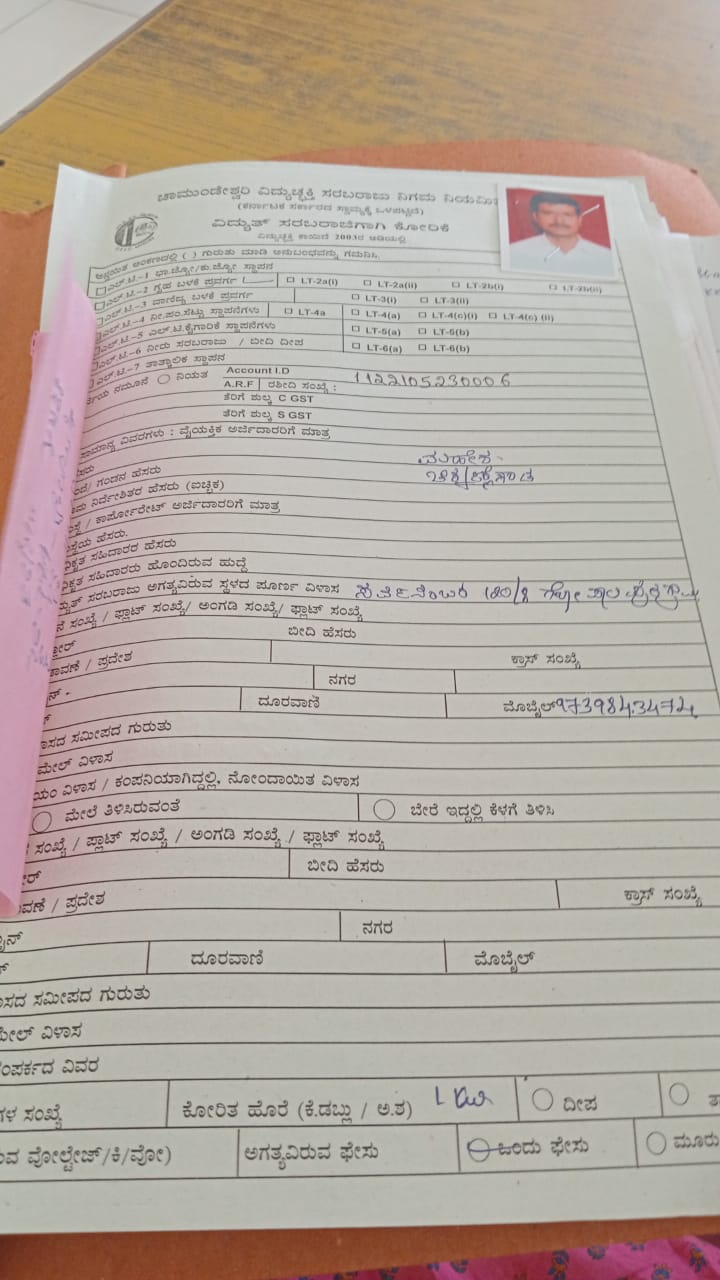 ಚಾಮುಂಡೇಶ್ವರಿ ವಿದ್ಯುಚ್ಛಕ್ತಿ ಸರಬರಾಜು ನಿಗಮ ನಿಯಮಿ
(ಕರ್ನಾಟಕ ಸರ್ಕಾರದ ಸ್ವಾಮ್ಯಕ್ಕೆ ಒಳಪಟ್ಟಿದೆ)
ವಿದ್ಯುತ್ ಸರಬರಾಜಿಗಾಗಿ ಕೋರಿಕೆ
ವಿದ್ಯುಚ್ಛಕ್ತಿ ಕಾಯಿದೆ 2003ರ ಅಡಿಯಲ್ಲಿ
ಅನ್ವಯಿತ ಅಂಕಣದಲ್ಲಿ ( ) ಗುರುತು ಮಾಡಿ ಅನುಬಂಧವನ್ನು ಗಮನಿಸಿ.
ಎಲ್.ಟಿ-1 ಭಾ.ಜ್ಯೋ/ಕು.ಜ್ಯೋ ಸ್ಥಾಪನ
ಎಲ್.ಟಿ-2 ಗೃಹ ಬಳಕೆ ಪ್ರವರ್ಗ LT-2a(i) LT-2a(ii) LT-2b(i) LT-2b(ii)
ಎಲ್.ಟಿ-3 ವಾಣಿಜ್ಯ ಬಳಕೆ ಪ್ರವರ್ಗ LT-3(i) LT-3(ii)
ಎಲ್.ಟಿ-4 ನೀ.ಪಂ.ಸೆಟ್ಟು ಸ್ಥಾಪನೆಗಳು LT-4a LT-4(a) LT-4(c)(i) LT-4(c) (ii)
ಎಲ್.ಟಿ-5 ಎಲ್.ಟಿ.ಕೈಗಾರಿಕೆ ಸ್ಥಾಪನೆಗಳು LT-5(a) LT-5(b)
ಎಲ್.ಟಿ-6 ನೀರು ಸರಬರಾಜು / ಬೀದಿ ದೀಪ LT-6(a) LT-6(b)
ಎಲ್.ಟಿ-7 ತಾತ್ಕಾಲಿಕ ಸ್ಥಾಪನ
ನಮೂನೆ ನಿಯತ Account I.D 1122105230006
A.R.F ರಶೀದಿ ಸಂಖ್ಯೆ :
ತೆರಿಗೆ ಶುಲ್ಕ C GST
ತೆರಿಗೆ ಶುಲ್ಕ S GST
ಸಾಮಾನ್ಯ ವಿವರಗಳು : ವೈಯಕ್ತಿಕ ಅರ್ಜಿದಾರರಿಗೆ ಮಾತ್ರ
ಸರು ಮಹೇಶ
ಗಂಡನ ಹೆಸರು
ನಿರ್ದೇಶಿತರ ಹೆಸರು (ಐಚ್ಛಿಕ)
/ ಕಾರ್ಪೋರೇಟ್ ಅರ್ಜಿದಾರರಿಗೆ ಮಾತ್ರ
ಸ್ಥೆಯ ಹೆಸರು.
ಸಹಿದಾರರ ಹೆಸರು
ನಿಕೃತ ಸಹಿದಾರರು ಹೊಂದಿರುವ ಹುದ್ದೆ
ಸರಬರಾಜು ಅಗತ್ಯವಿರುವ ಸ್ಥಳದ ಪೂರ್ಣ ವಿಳಾಸ
ಸಂಖ್ಯೆ / ಫ್ಲಾಟ್ ಸಂಖ್ಯೆ/ ಅಂಗಡಿ ಸಂಖ್ಯೆ/ ಫ್ಲಾಟ್ ಸಂಖ್ಯೆ
ಬೀದಿ ಹೆಸರು
ಾವಣೆ / ಪ್ರದೇಶ ಕ್ರಾಸ್ ಸಂಖ್ಯೆ
ನಗರ
ದೂರವಾಣಿ ಮೊಬೈಲ್ 9739843474
ಾಸದ ಸಮೀಪದ ಗುರುತು
ಮೇಲ್ ವಿಳಾಸ
ಯಂ ವಿಳಾಸ / ಕಂಪನಿಯಾಗಿದ್ದಲ್ಲಿ, ನೋಂದಾಯಿತ ವಿಳಾಸ
ಮೇಲೆ ತಿಳಿಸಿರುವಂತೆ ಬೇರೆ ಇದ್ದಲ್ಲಿ ಕೆಳಗೆ ತಿಳಿಸಿ
ಸಂಖ್ಯೆ / ಪ್ಲಾಟ್ ಸಂಖ್ಯೆ / ಅಂಗಡಿ ಸಂಖ್ಯೆ / ಫ್ಲಾಟ್ ಸಂಖ್ಯೆ
ಬೀದಿ ಹೆಸರು
ಾವಣೆ / ಪ್ರದೇಶ ಕ್ರಾಸ್ ಸಂಖ್ಯೆ
ನಗರ
ದೂರವಾಣಿ ಮೊಬೈಲ್
ಾಸದ ಸಮೀಪದ ಗುರುತು
ಮೇಲ್ ವಿಳಾಸ
ಂಪರ್ಕದ ವಿವರ
ಗಳ ಸಂಖ್ಯೆ ಕೋರಿತ ಹೊರೆ (ಕೆ.ಡಬ್ಲು / ಅ.ಶ) 1 KW ದೀಪ
ುವ ವೋಲ್ಟೇಜ್/ಕಿ/ವೋ) ಅಗತ್ಯವಿರುವ ಫೇಸು ಒಂದು ಫೇಸು ಮೂರು